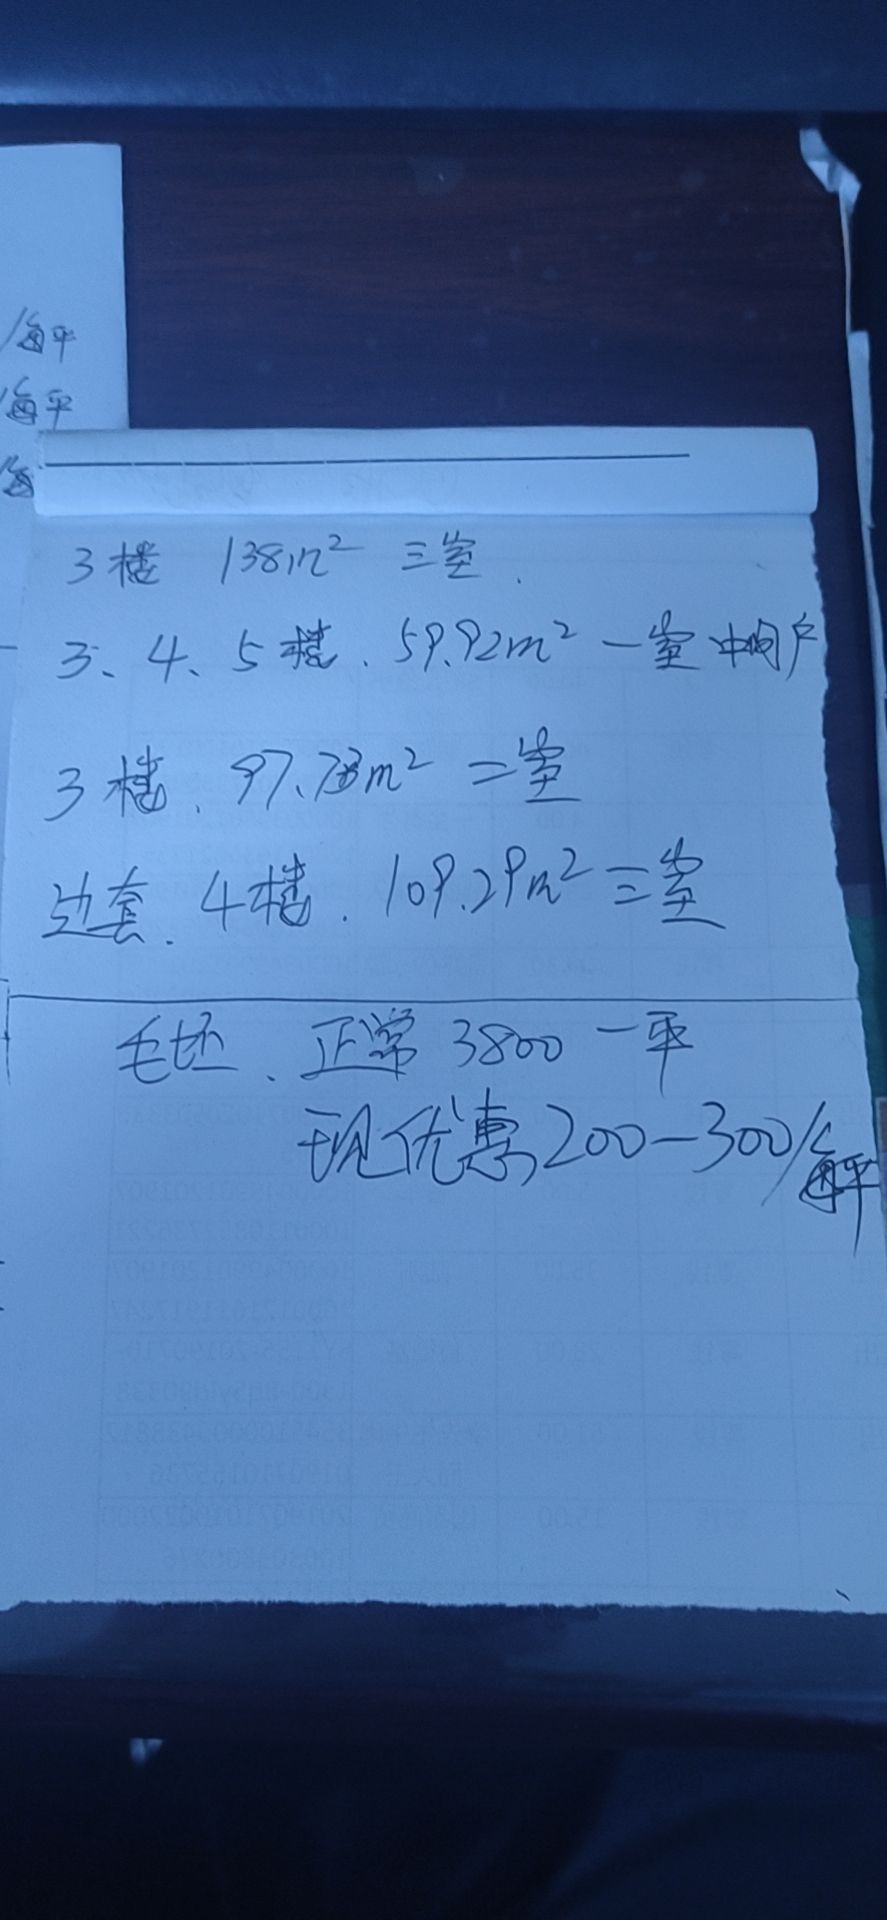 /每平
/每平
/每
3楼 138m² 三室.
3、4、5楼、59.92m² 一室 中间户
3楼、97.78m² 二室
边套、4楼、109.29m² 三室
毛坯、正常3800一平
现优惠200-300/每平